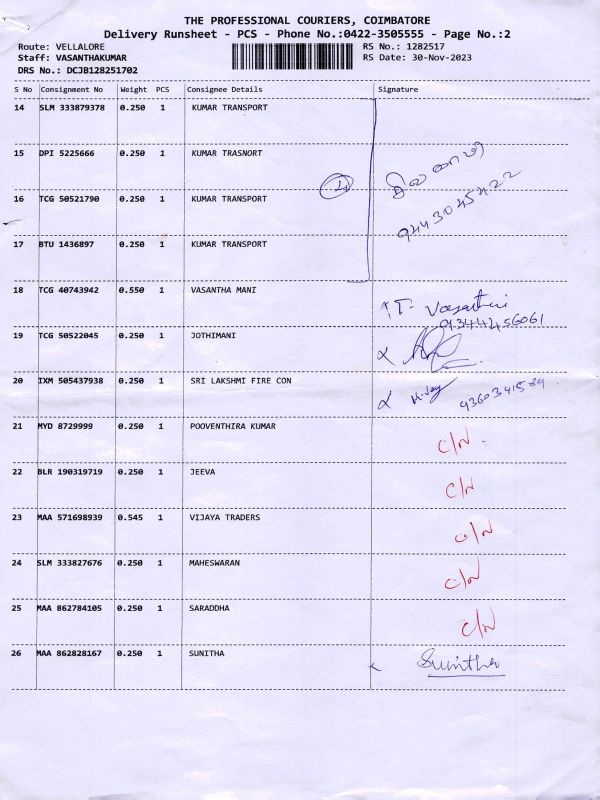 THE PROFESSIONAL COURIERS, COIMBATORE
Delivery Runsheet - PCS - Phone No.:0422-3505555 - Page No.:2
Route: VELLALORE RS No.: 1282517
Staff: VASANTHAKUMAR RS Date: 30-Nov-2023
DRS No.: DCJB128251702
S No Consignment No Weight PCS Consignee Details Signature
14 SLM 333879378 0.250 1 KUMAR TRANSPORT
15 DPI 5225666 0.250 1 KUMAR TRASNORT
4
16 TCG 50521790 0.250 1 KUMAR TRANSPORT
9443045422
17 BTU 1436897 0.250 1 KUMAR TRANSPORT
18 TCG 40743942 0.550 1 VASANTHA MANI
T. Vasanthi
9344256061
19 TCG 50522045 0.250 1 JOTHIMANI
20 IXM 505437938 0.250 1 SRI LAKSHMI FIRE CON
9360341589
21 MYD 8729999 0.250 1 POOVENTHIRA KUMAR C/N
22 BLR 190319719 0.250 1 JEEVA C/N
23 MAA 571698939 0.545 1 VIJAYA TRADERS C/N
24 SLM 333827676 0.250 1 MAHESWARAN C/N
25 MAA 862784105 0.250 1 SARADDHA C/N
26 MAA 862828167 0.250 1 SUNITHA Sunitha